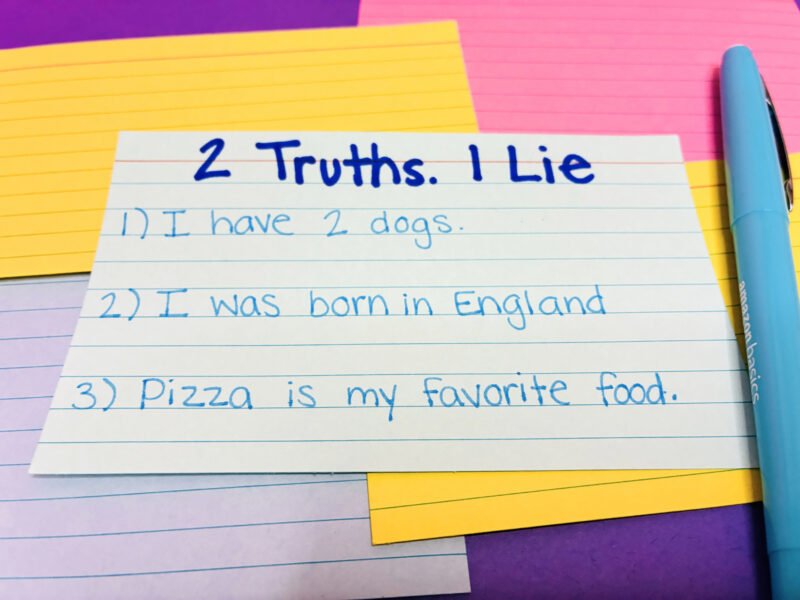 2 Truths. 1 Lie
1) I have 2 dogs.
2) I was born in England
3) Pizza is my favorite food.
amazon basics